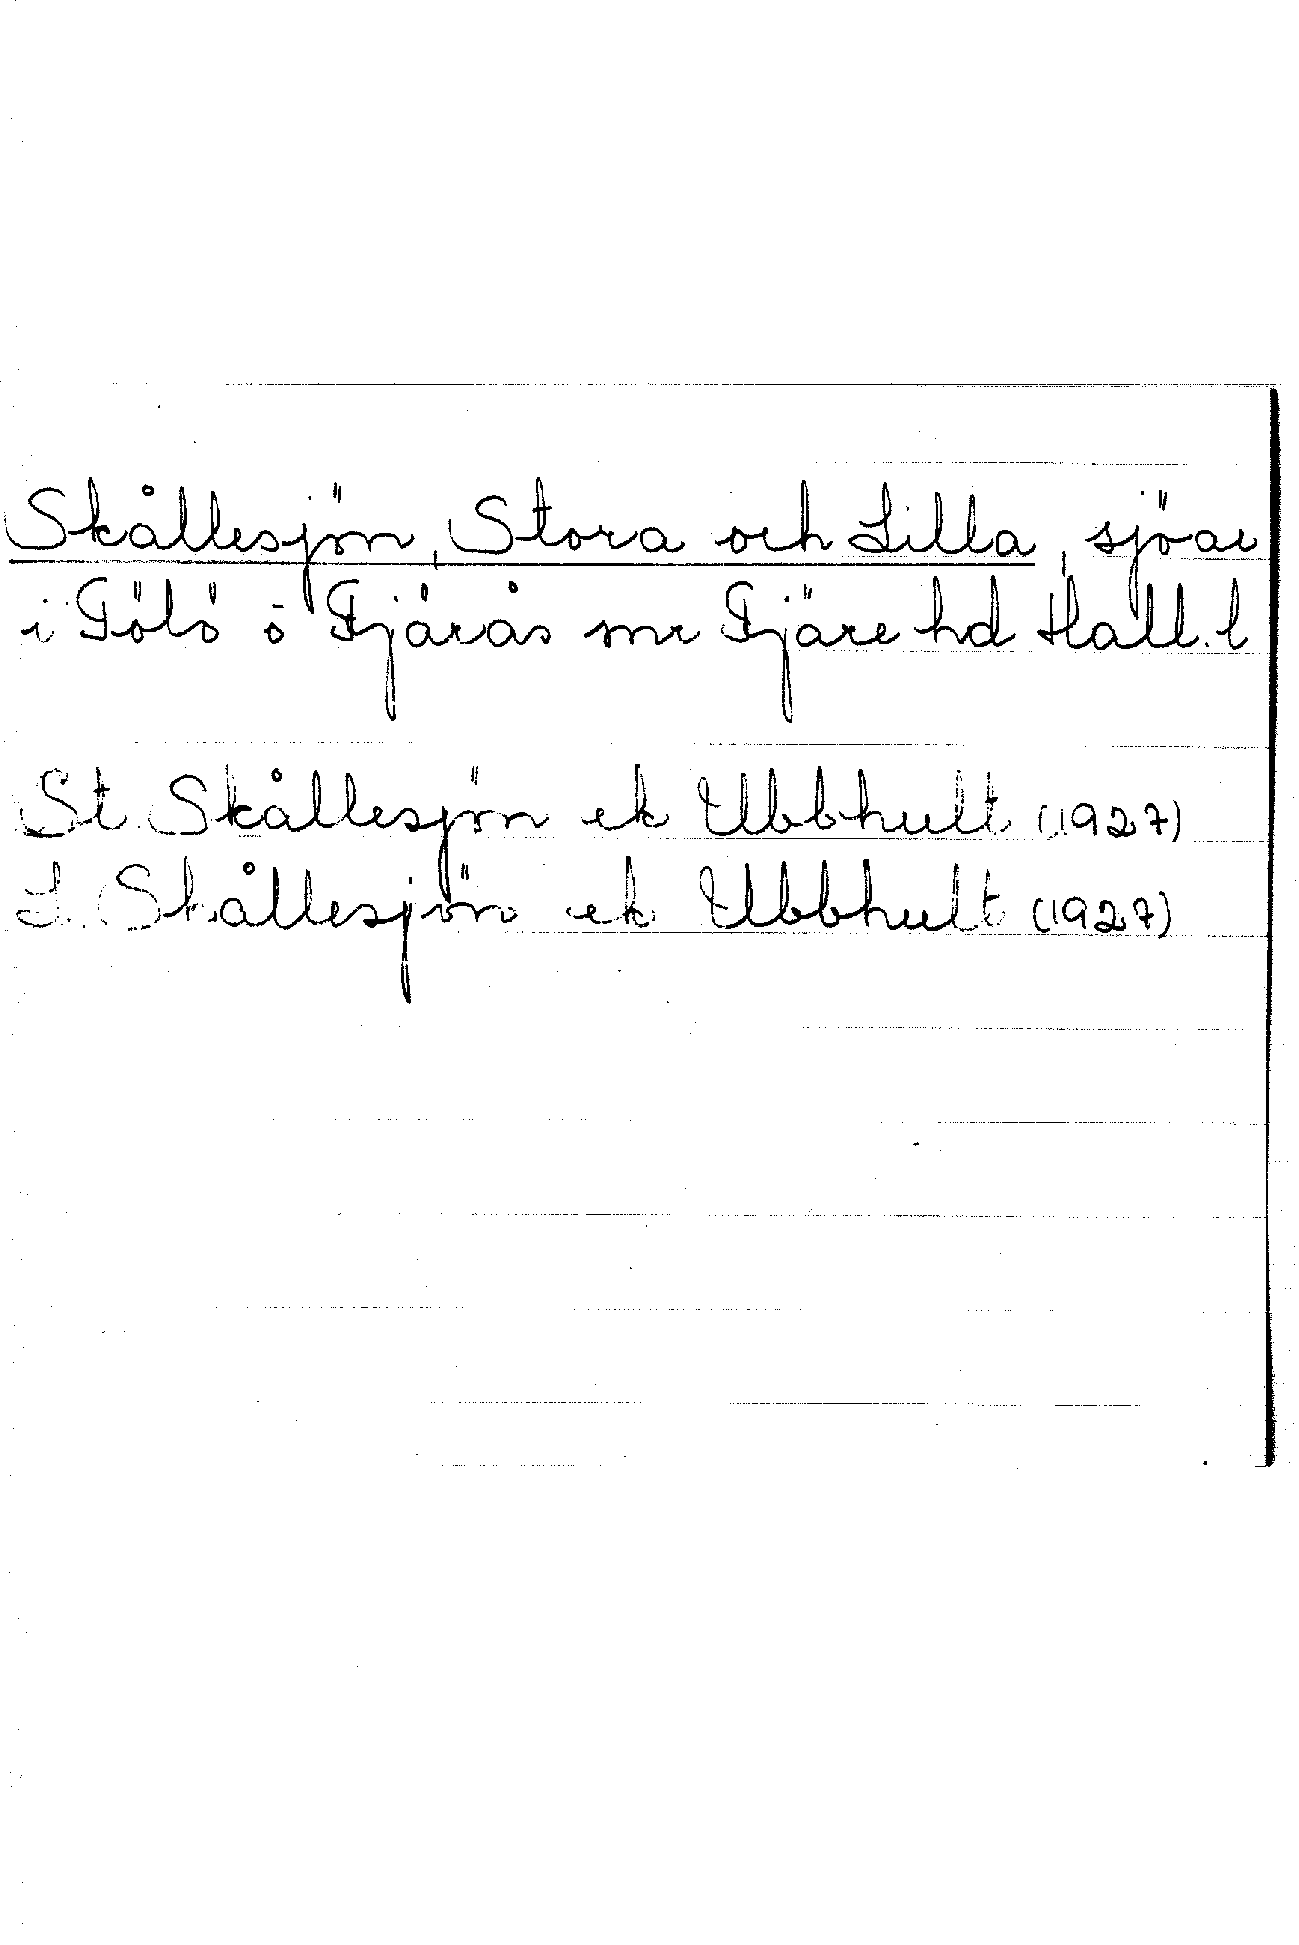 Skållesjön, Stora och Lilla, sjöar
i Fölö o Fjärås snr Fjäre hd Hall. l
St. Skållesjön ek Ubbhult (1927)
L. Skållesjön ek Ubbhult (1927)